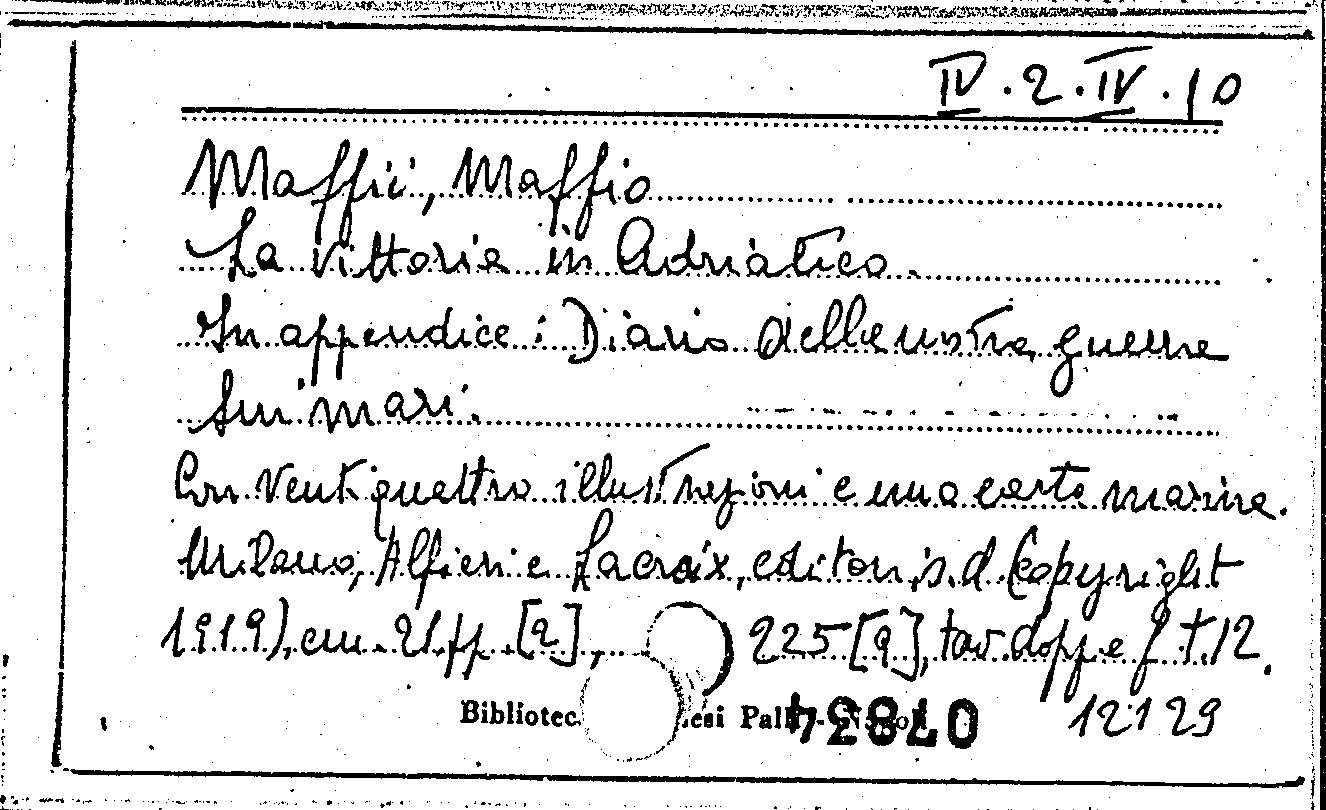 IV.2.IV.10
Maffii, Maffio
La vittoria in Adriatico.
In appendice: Diario della nostra guerra
sui mari.
Con ventiquattro illustrazioni e una carta marina.
Milano, Alfieri e Lacroix, editori, s.d. (copyright
1919), cm. 21 pp. [2], 225 [9], tav. dopp. e f. t. 12.
Bibliotec esi Pall
07834 12129